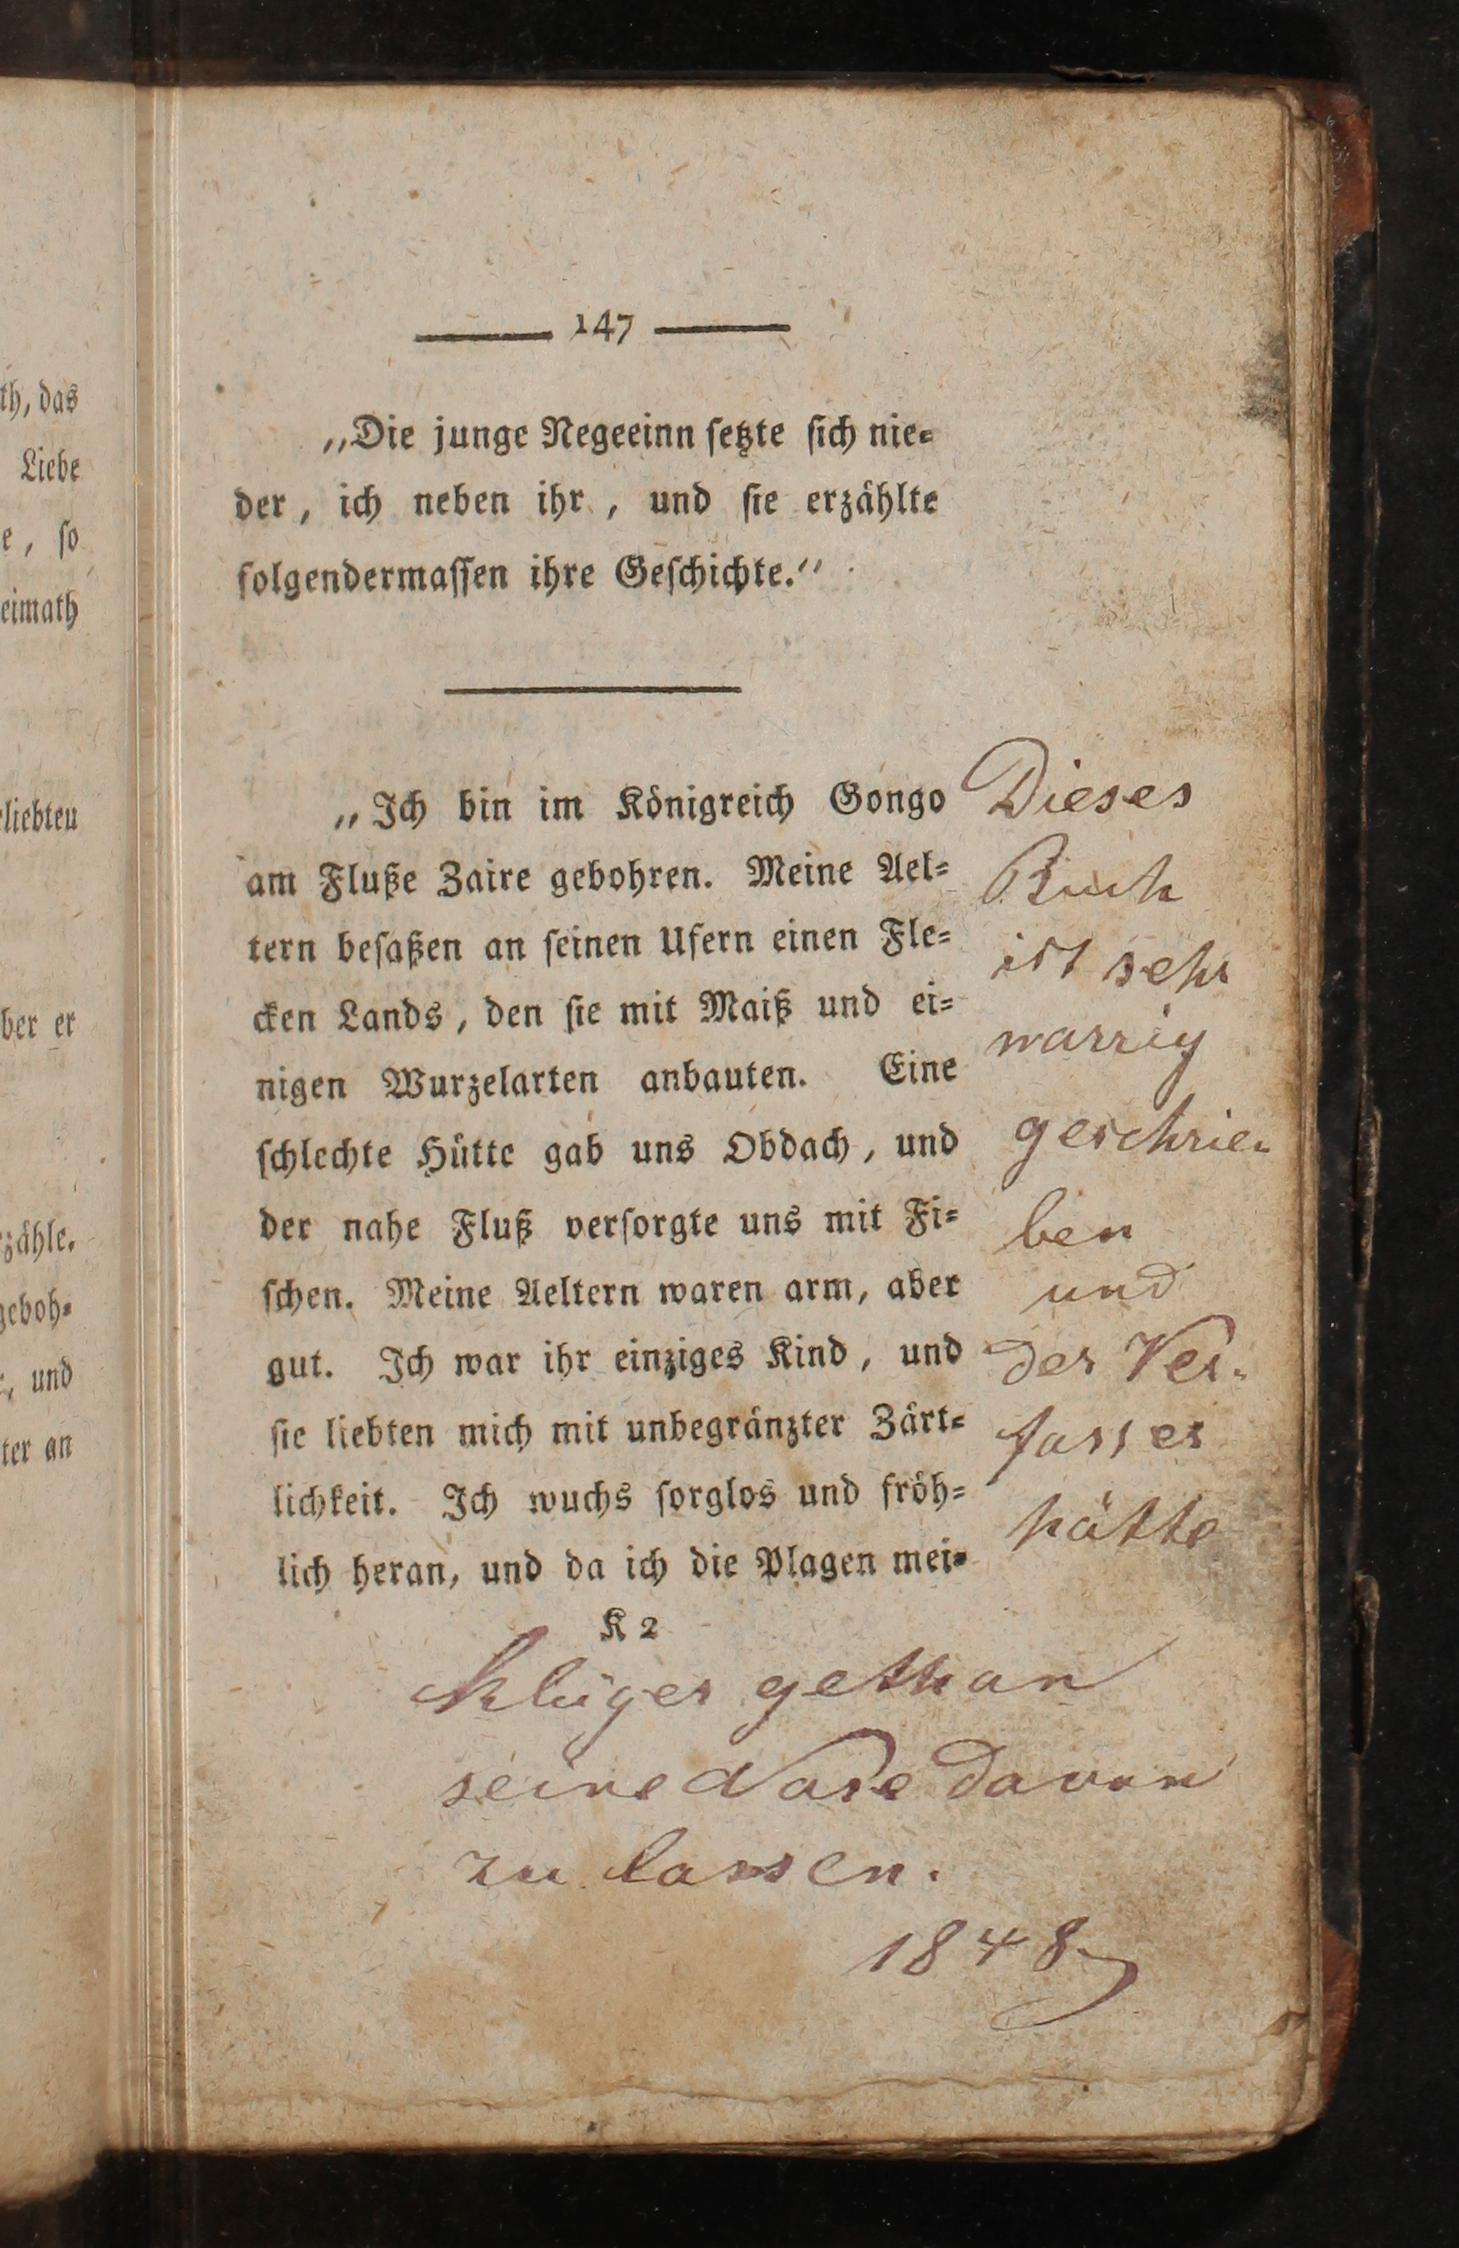 th, das
Liebe
e, so
eimath
liebten
ber er
zähle.
geboh⸗
, und
ter an
147
„Die junge Negeeinn ſetzte ſich nie⸗
der, ich neben ihr, und ſie erzählte
folgendermaſſen ihre Geſchichte.“
„Ich bin im Königreich Gongo
am Fluße Zaire gebohren. Meine Ael⸗
tern beſaßen an ſeinen Ufern einen Fle⸗
cken Lands, den ſie mit Maiß und ei⸗
nigen Wurzelarten anbauten. Eine
ſchlechte Hütte gab uns Obdach, und
der nahe Fluß verſorgte uns mit Fi⸗
ſchen. Meine Aeltern waren arm, aber
gut. Ich war ihr einziges Kind, und
ſie liebten mich mit unbegränzter Zärt⸗
lichkeit. Ich wuchs ſorglos und fröh⸗
lich heran, und da ich die Plagen mei⸗
K 2
Dieses
Buch
ist sehr
geschrie-
ben
und
der Ver-
fasser
hätte
klüger gethan
seine Nase davon
zu lassen.
1848